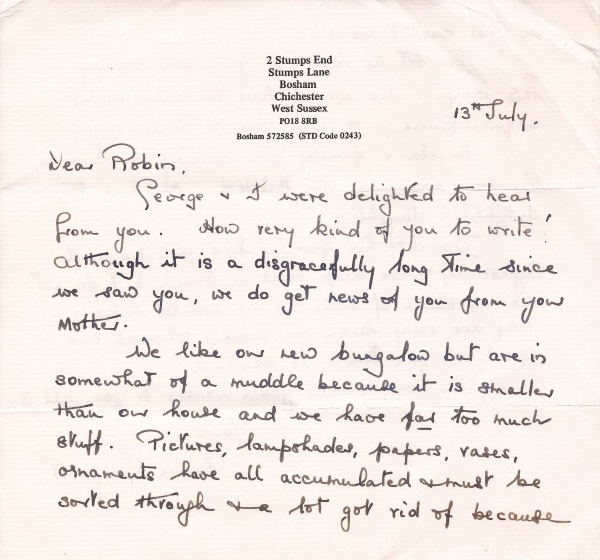 2 Stumps End
Stumps Lane
Bosham
Chichester
West Sussex
PO18 8RB
Bosham 572585 (STD Code 0243)
13th July.
Dear Robin,
George & I were delighted to hear
from you. How very kind of you to write!
Although it is a disgracefully long time since
we saw you, we do get news of you from your
Mother.
We like our new bungalow but are in
somewhat of a muddle because it is smaller
than our house and we have far too much
stuff. Pictures, lampshades, papers, vases,
ornaments have all accumulated & must be
sorted through & a lot got rid of because